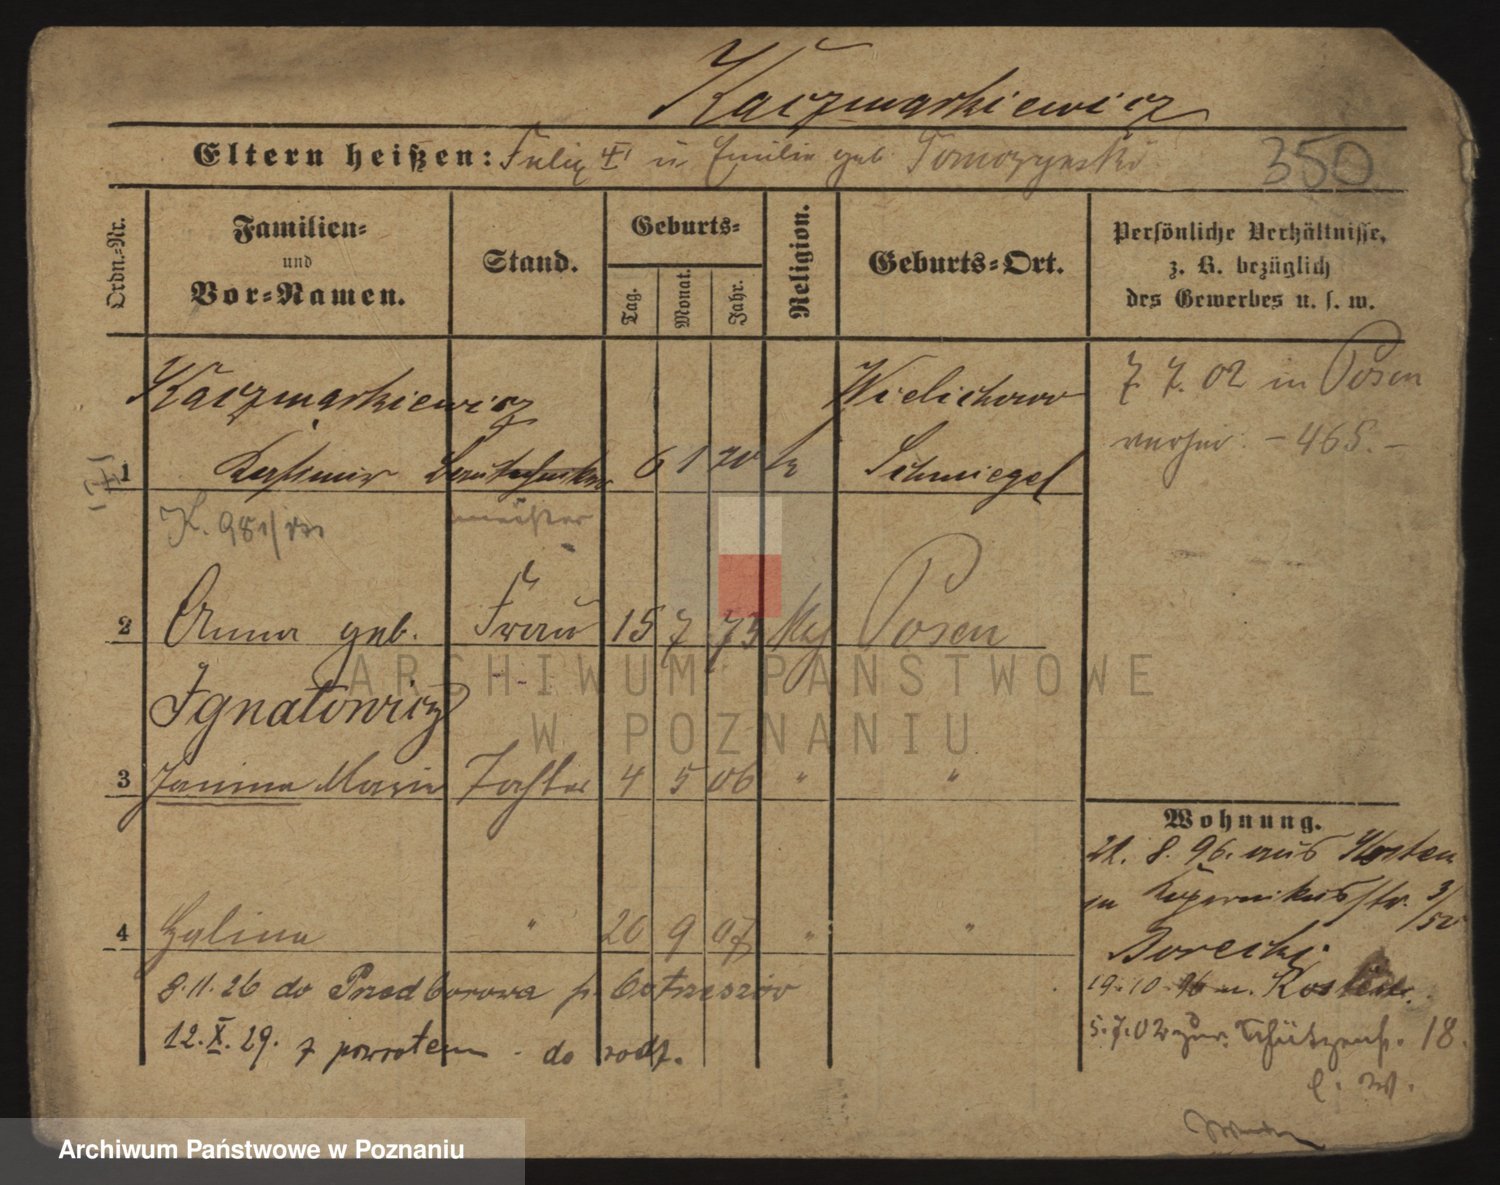 Kaczmarkiewicz
Eltern heißen: Felix u. Emilie geb. Tomczynski
350
Ordn.-Nr.
Familien-
und
Vor-Namen.
Stand.
Geburts-
Tag.
Monat.
Jahr.
Religion.
Geburts-Ort.
Persönliche Verhältnisse,
z. B. bezüglich
des Gewerbes u. s. w.
Kaczmarkiewicz Wielichowo
7. 7. 02 in Posen
1 Kasimir Bautechniker 6 1 70 k Schmiegel
verheir. - 465. -
K. 981/
meister
2 Anna geb. Frau 15 7 73 kg Posen
Ignatowicz
ARCHIWUM PAŃSTWOWE
W POZNANIU
3 Janina Maria Tochter 4 5 06 " "
4 Halina " 20 9 07 " "
8.11.26 do Przedborowa p. Ostrzeszów
12.X.29. z powrotem - do rodz.
Wohnung.
21. 8. 96. aus Kosten
zu Kopernikusstr. 3/
Borecki
19.10.96 n. Kosten.
5.7.02 zur. Schützenstr. 18.
b. W.
Wenden
Archiwum Państwowe w Poznaniu